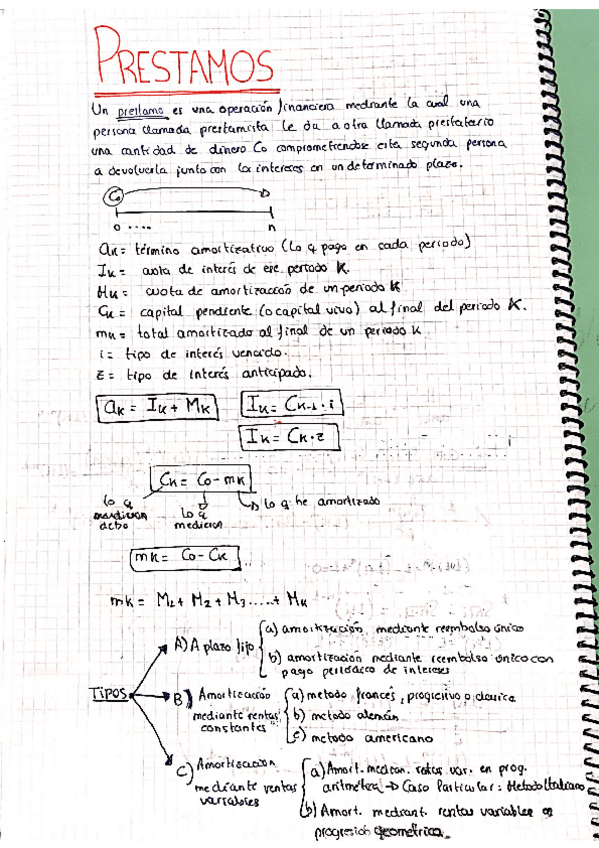 PRESTAMOS
Un prestamo es una operación financiera mediante la cual una
persona llamada prestamista le da a otra llamada prestatario
una cantidad de dinero Co comprometiendose esta segunda persona
a devolverla junto con los intereses en un determinado plazo.
Co
0 .... n
aK = término amortizativo (lo q pago en cada periodo)
IK = cuota de interés de ese periodo K.
MK = cuota de amortización de un periodo K
CK = capital pendiente (o capital vivo) al final del periodo K.
mK = total amortizado al final de un periodo K
i = tipo de interés vencido.
z = tipo de interés anticipado.
aK = IK + MK IK = CK-1 · i
IK = CK · z
CK = Co - mK
lo q debo lo q me dieron lo q he amortizado
mK = Co - CK
mK = M1 + M2 + M3 .....+ MK
TIPOS
A) A plazo fijo
a) amortización mediante reembolso único
b) amortización mediante reembolso único con
pago periódico de intereses
B) Amortización
mediante rentas
constantes
a) metodo francés, progresivo o clasica
b) metodo alemán
c) metodo americano
C) Amortización
mediante rentas
variables
a) Amort. median. rentas var. en prog.
aritmética → Caso Particular: Metodo Italiano
b) Amort. mediant. rentas variables en
progresión geometrica.